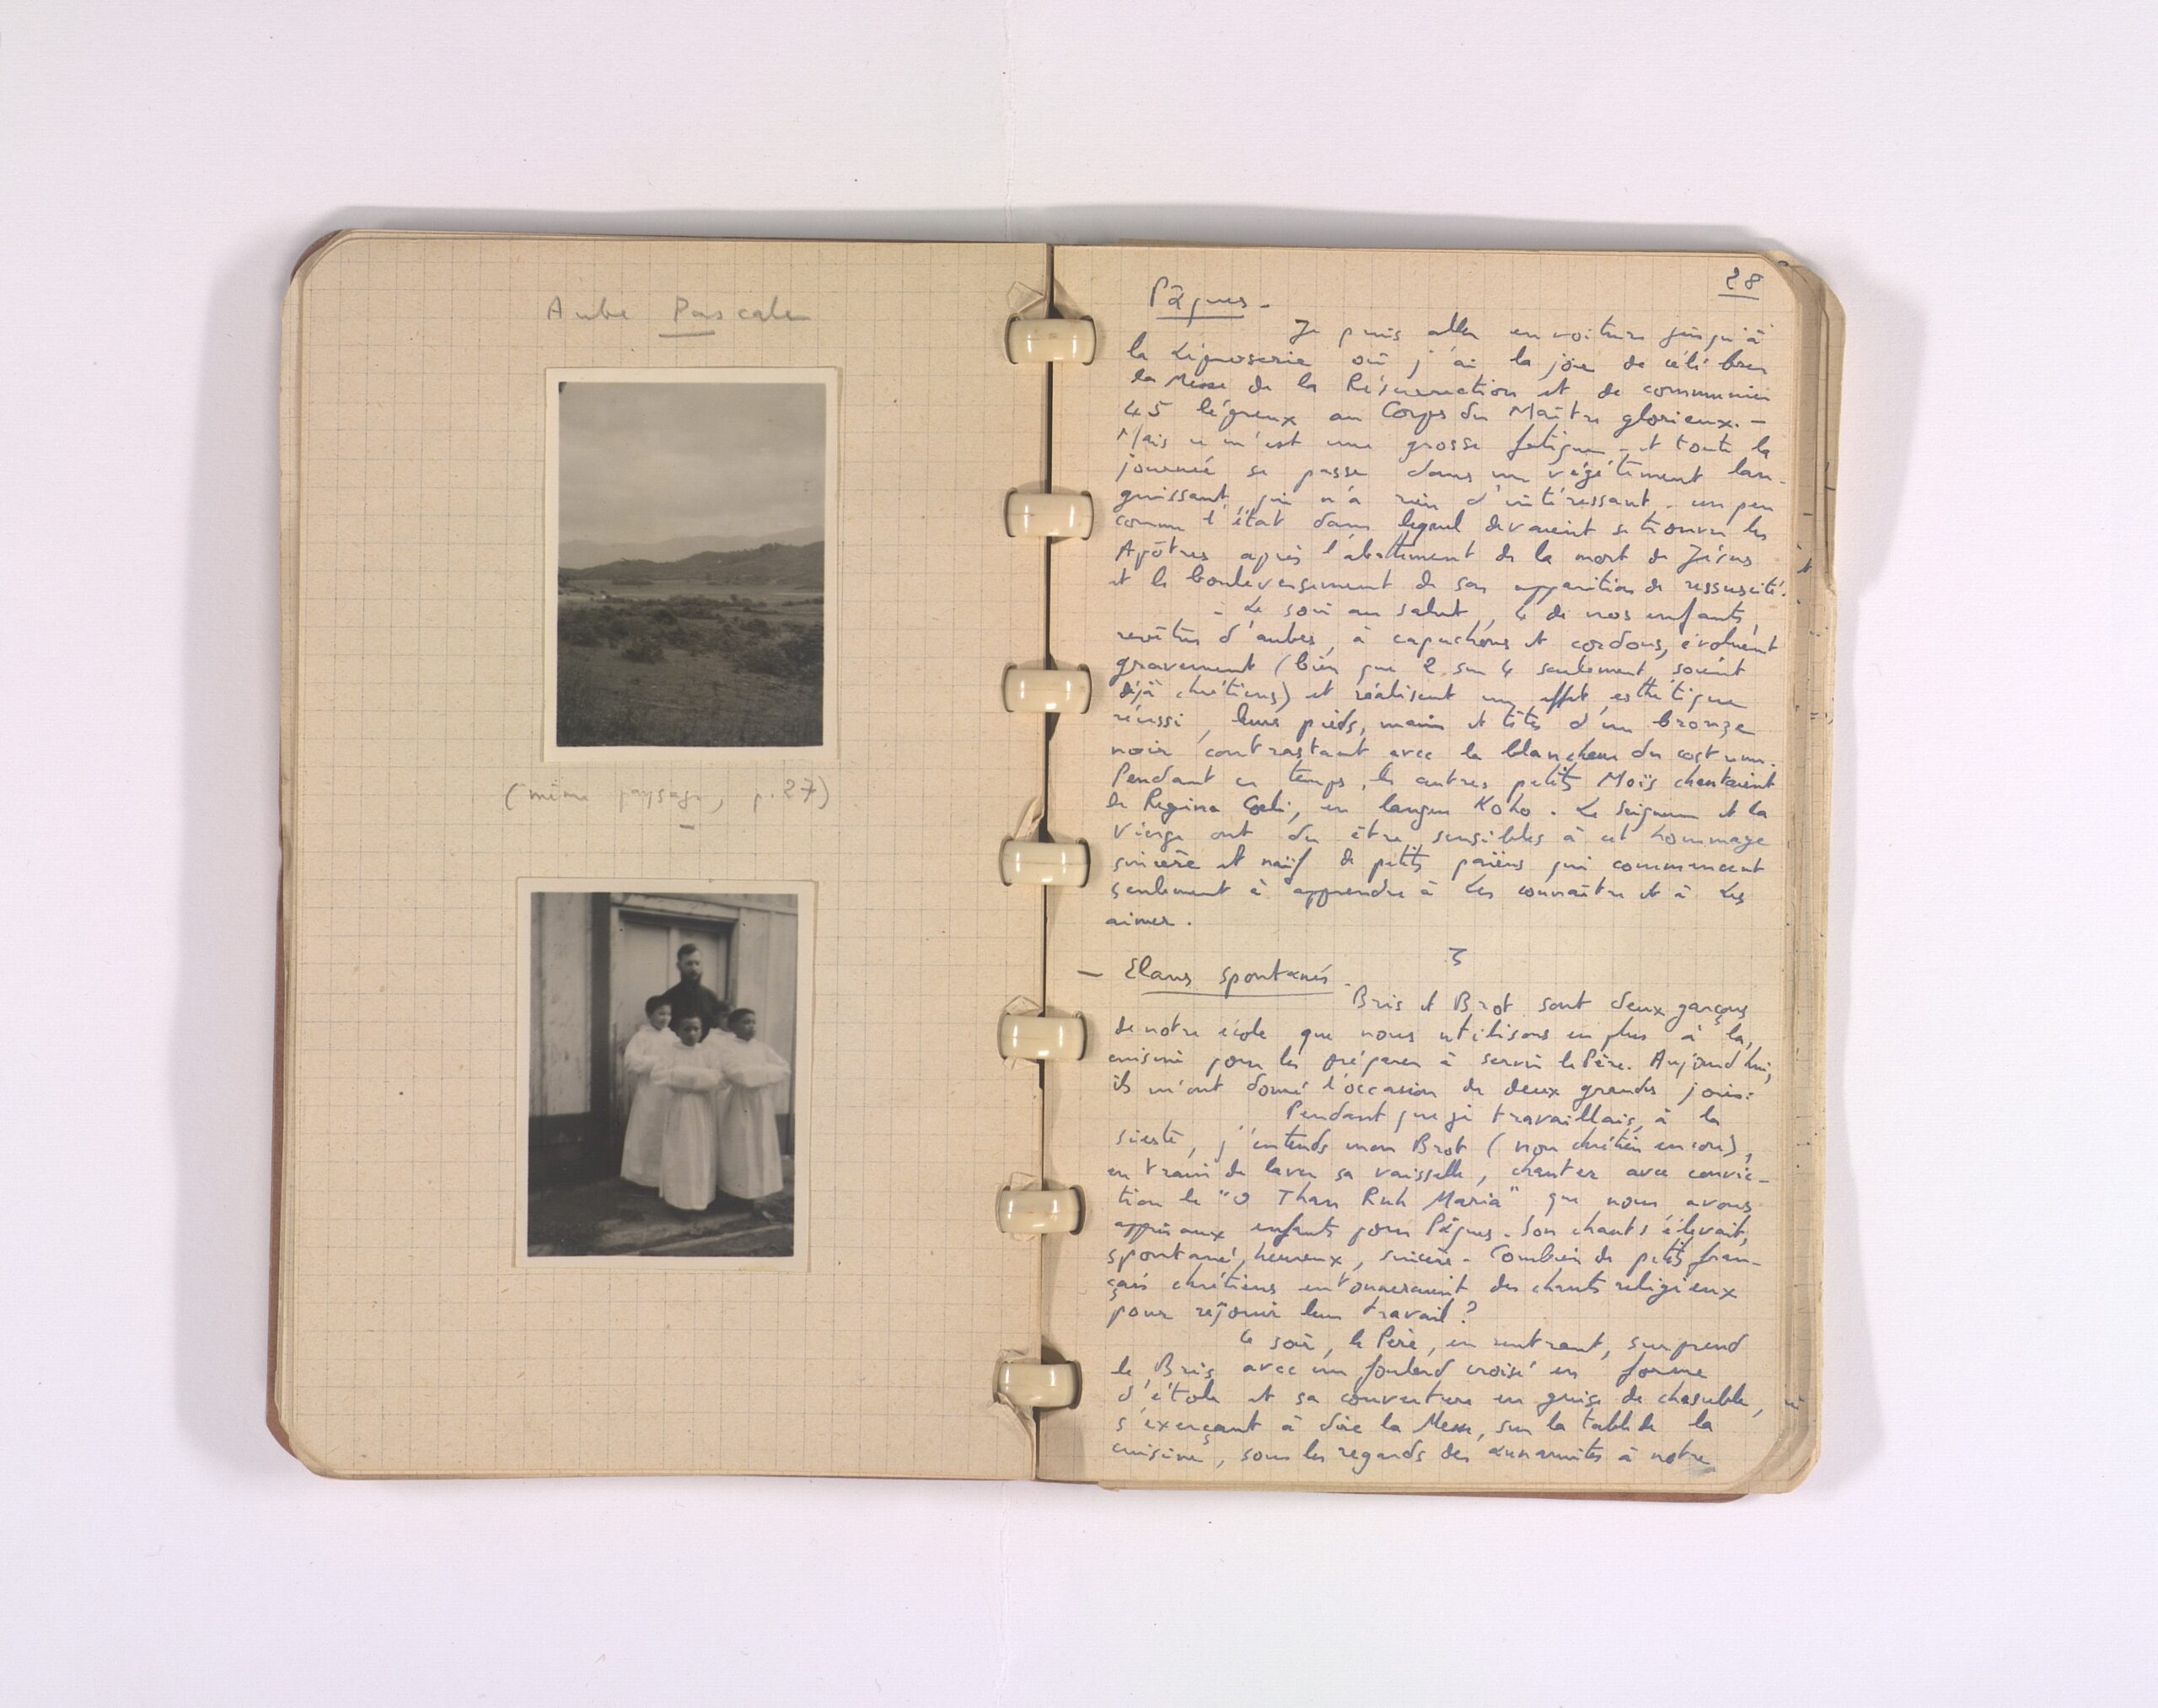 Aube Pascale
(même paysage, p. 27)
28
Pâques -
Je puis aller en voiture jusqu'à
la Léproserie où j'ai la joie de célébrer
la Messe de la Résurrection et de communier
45 lépreux au Corps du Maître glorieux. -
Mais ce m'est une grosse fatigue - et toute la
journée se passe dans un végètement lan-
guissant, qui n'a rien d'intéressant - un peu
comme l'état dans lequel devaient se trouver les
Apôtres après l'abattement de la mort de Jésus
et le bouleversement de son apparition de ressuscité.
- Le soir au salut, 4 de nos enfants,
revêtus d'aubes, à capuchons et cordons, évoluent
gravement (bien que 2 sur 4 seulement soient
déjà chrétiens) et réalisent un effet esthétique
réussi, leurs pieds, mains et têtes d'un bronze
noir contrastant avec la blancheur du costume.
Pendant ce temps, les autres petits Moïs chantaient
le Regina Coeli, en langue Koho. Le Seigneur et la
Vierge ont du être sensibles à cet hommage
sincère et naïf de petits païens qui commencent
seulement à apprendre à Les connaître et à Les
aimer.
3
- Elans spontanés -
Bris et Brot sont deux garçons
de notre école que nous utilisons en plus à la
cuisine pour les préparer à servir le Père. Aujourd'hui,
ils m'ont donné l'occasion de deux grandes joies:
Pendant que je travaillais, à la
sieste, j'entends mon Brot (non chrétien encore),
en train de laver sa vaisselle, chanter avec convic-
tion le "O Than Ruh Maria" que nous avons
appris aux enfants pour Pâques. Son chant s'élevait,
spontané, heureux, sincère - Combien de petits fran-
çais chrétiens entonneraient des chants religieux
pour réjouir leur travail?
Le soir, le Père, en rentrant, surprend
le Bris avec un foulard croisé en forme
d'étole et sa couverture en guise de chasuble,
s'exerçant à dire la Messe, sur la table de la
cuisine, sous les regards des annamites à notre